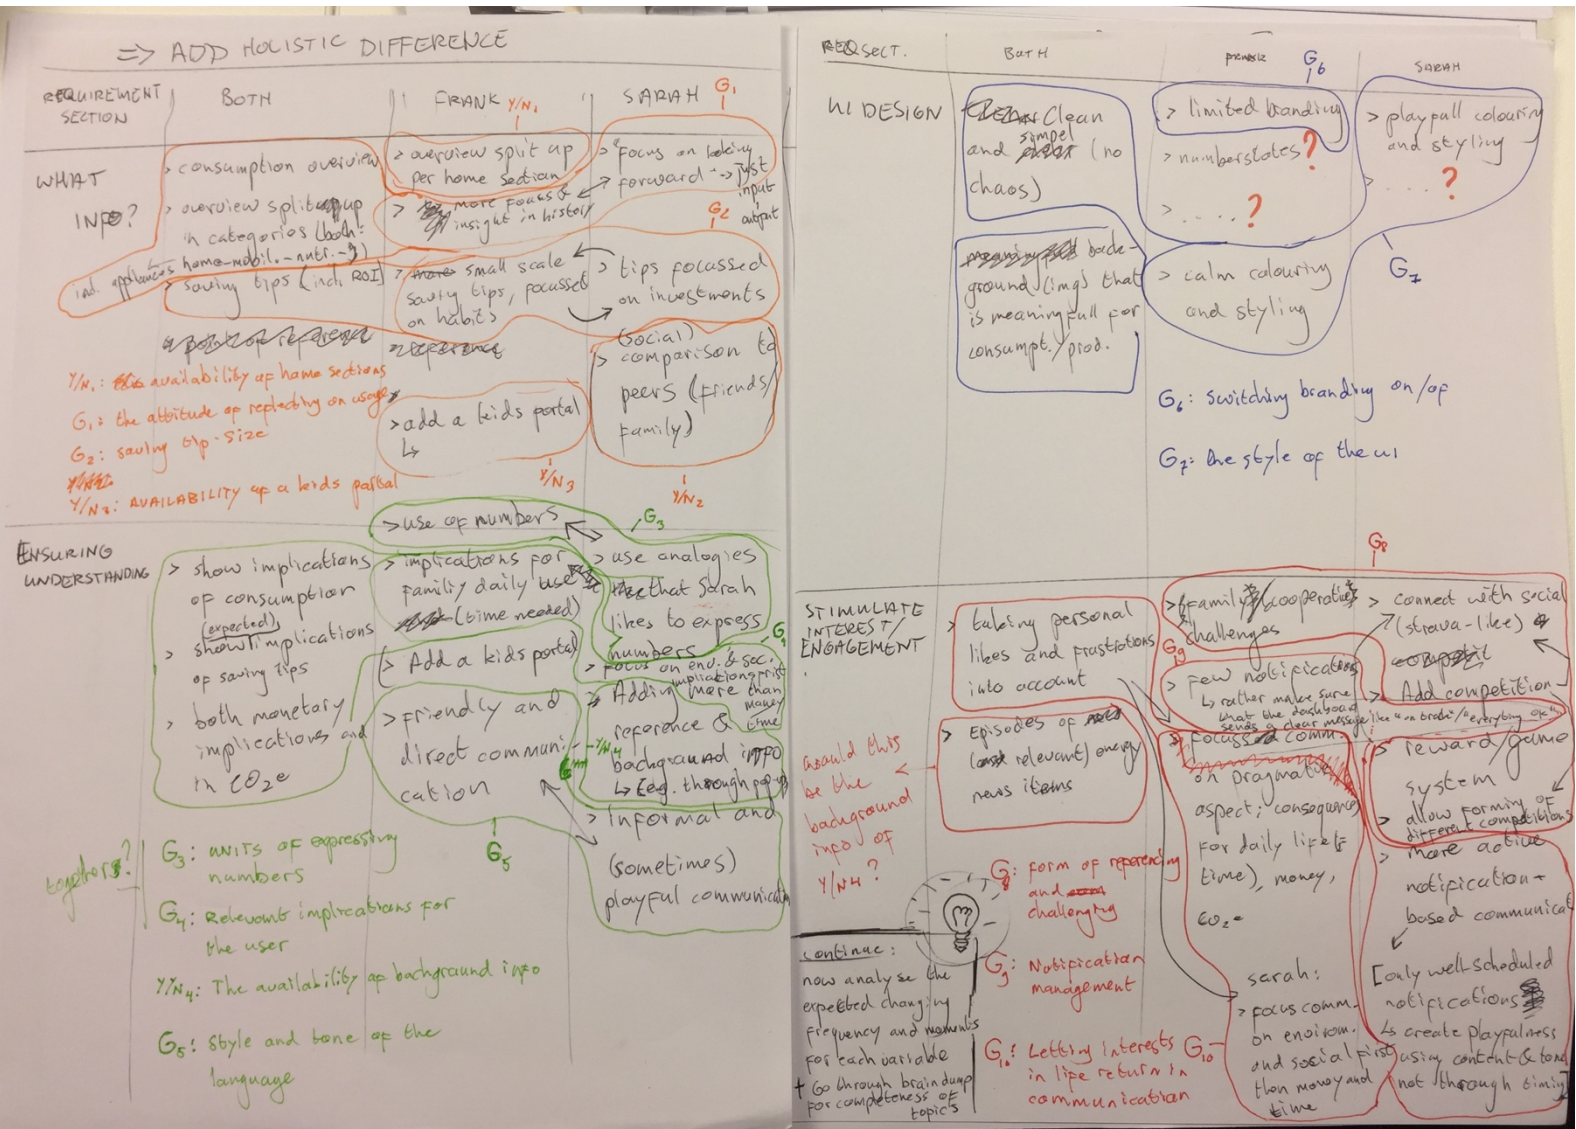 => ADD HOLISTIC DIFFERENCE
REQUIREMENT
SECTION
BOTH
FRANK
Y/N1
SARAH
G1
WHAT
INFO?
> consumption overview
> overview split up
in categories (both:
home-mobil.-nutr.-
incl. appliances
> saving tips (incl. ROI)
> overview split up
per home section
> more focus &
insight in history
> small scale
saving tips, focussed
on habits
> Focus on looking
forward -> just
input
output
G2
> tips focussed
on investments
(social)
> comparison to
peers (friends/
family)
Y/N2
> add a kids portal
↳
Y/N3
Y/N1: availability of home sections
G1: the attitude of reflecting on usage
G2: saving tip-size
Y/N3: AVAILABILITY of a kids portal
ENSURING
UNDERSTANDING
> show implications
of consumption
(expected)
> show implications
of saving tips
> both monetary
implications and
in CO2e
> use of numbers
> implications for
family daily use
(time needed)
> Add a kids portal
> friendly and
direct communi-
cation
G5
G3
> use analogies
that Sarah
likes to express
numbers
G4
> Focus on env. & soc.
implications first
more than
money
time
> Adding
reference &
background info
↳ (eg. through pop-up
Y/N4
> informal and
(sometimes)
playful communication
together?
G3: UNITS OF expressing
numbers
G4: Relevant implications for
the user
Y/N4: The availability of background info
G5: Style and tone of the
language
REQ SECT.
BOTH
G6
SARAH
UI DESIGN
> Clean
simpel
and (no
chaos)
> back-
ground (img) that
is meaningfull for
consumpt./prod.
> limited branding
> numberstates?
> .....?
> calm colouring
and styling
> playfull colouring
and styling
> ....?
G7
G6: switching branding on/of
G7: the style of the UI
STIMULATE
INTEREST/
ENGAGEMENT
> taking personal
likes and frustrations
into account
> Episodes of
relevant) energy
news items
would this
be the
background
info of
Y/N4?
G8
> (Family) cooperative
challenges
G9
> few notifications
↳ rather make sure
that the dashboard
sends a clear message like "on track"/"everything ok"
> Focus comm.
on pragmatic
aspect; consequences
for daily life (=
time), money,
CO2e
sarah:
> focus comm.
on environ.
and social first
then money and
time
G10
> Connect with social
(strava-like)
> Add competition
> reward/game
system
> allow forming of
different competitions
> more active
notification-
based communicat
[only well-scheduled
notifications
↳ create playfulness
using content & tone
not through timing]
G8: form of referencing
and
challenging
G9: Notification
management
G10: Letting interests
in life return in
communication
continue:
now analyse the
expected changing
frequency and moments
for each variable
+ Go through braindump
for completeness of
topics